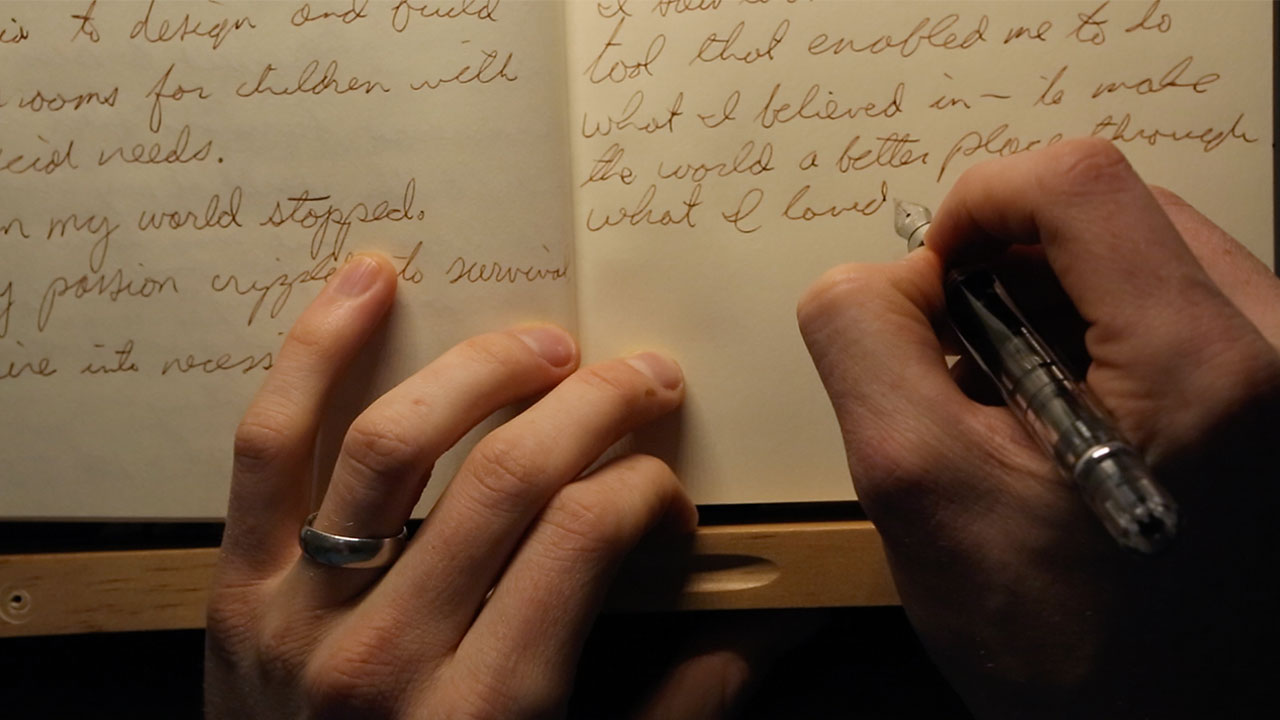 to design and build
rooms for children with
needs.
my world stopped.
passion to survival
into
I
tool that enabled me to do
what I believed in – to make
the world a better place through
what I loved